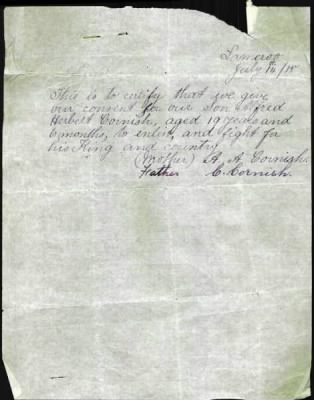 Lameroo
July 14/15
This is to certify that we give
our consent for our Son Alfred
Herbert Cornish, aged 19 years and
6 months, to enlist, and fight for
his King and country
(Mother) A. A. Cornish.
Father C. Cornish.